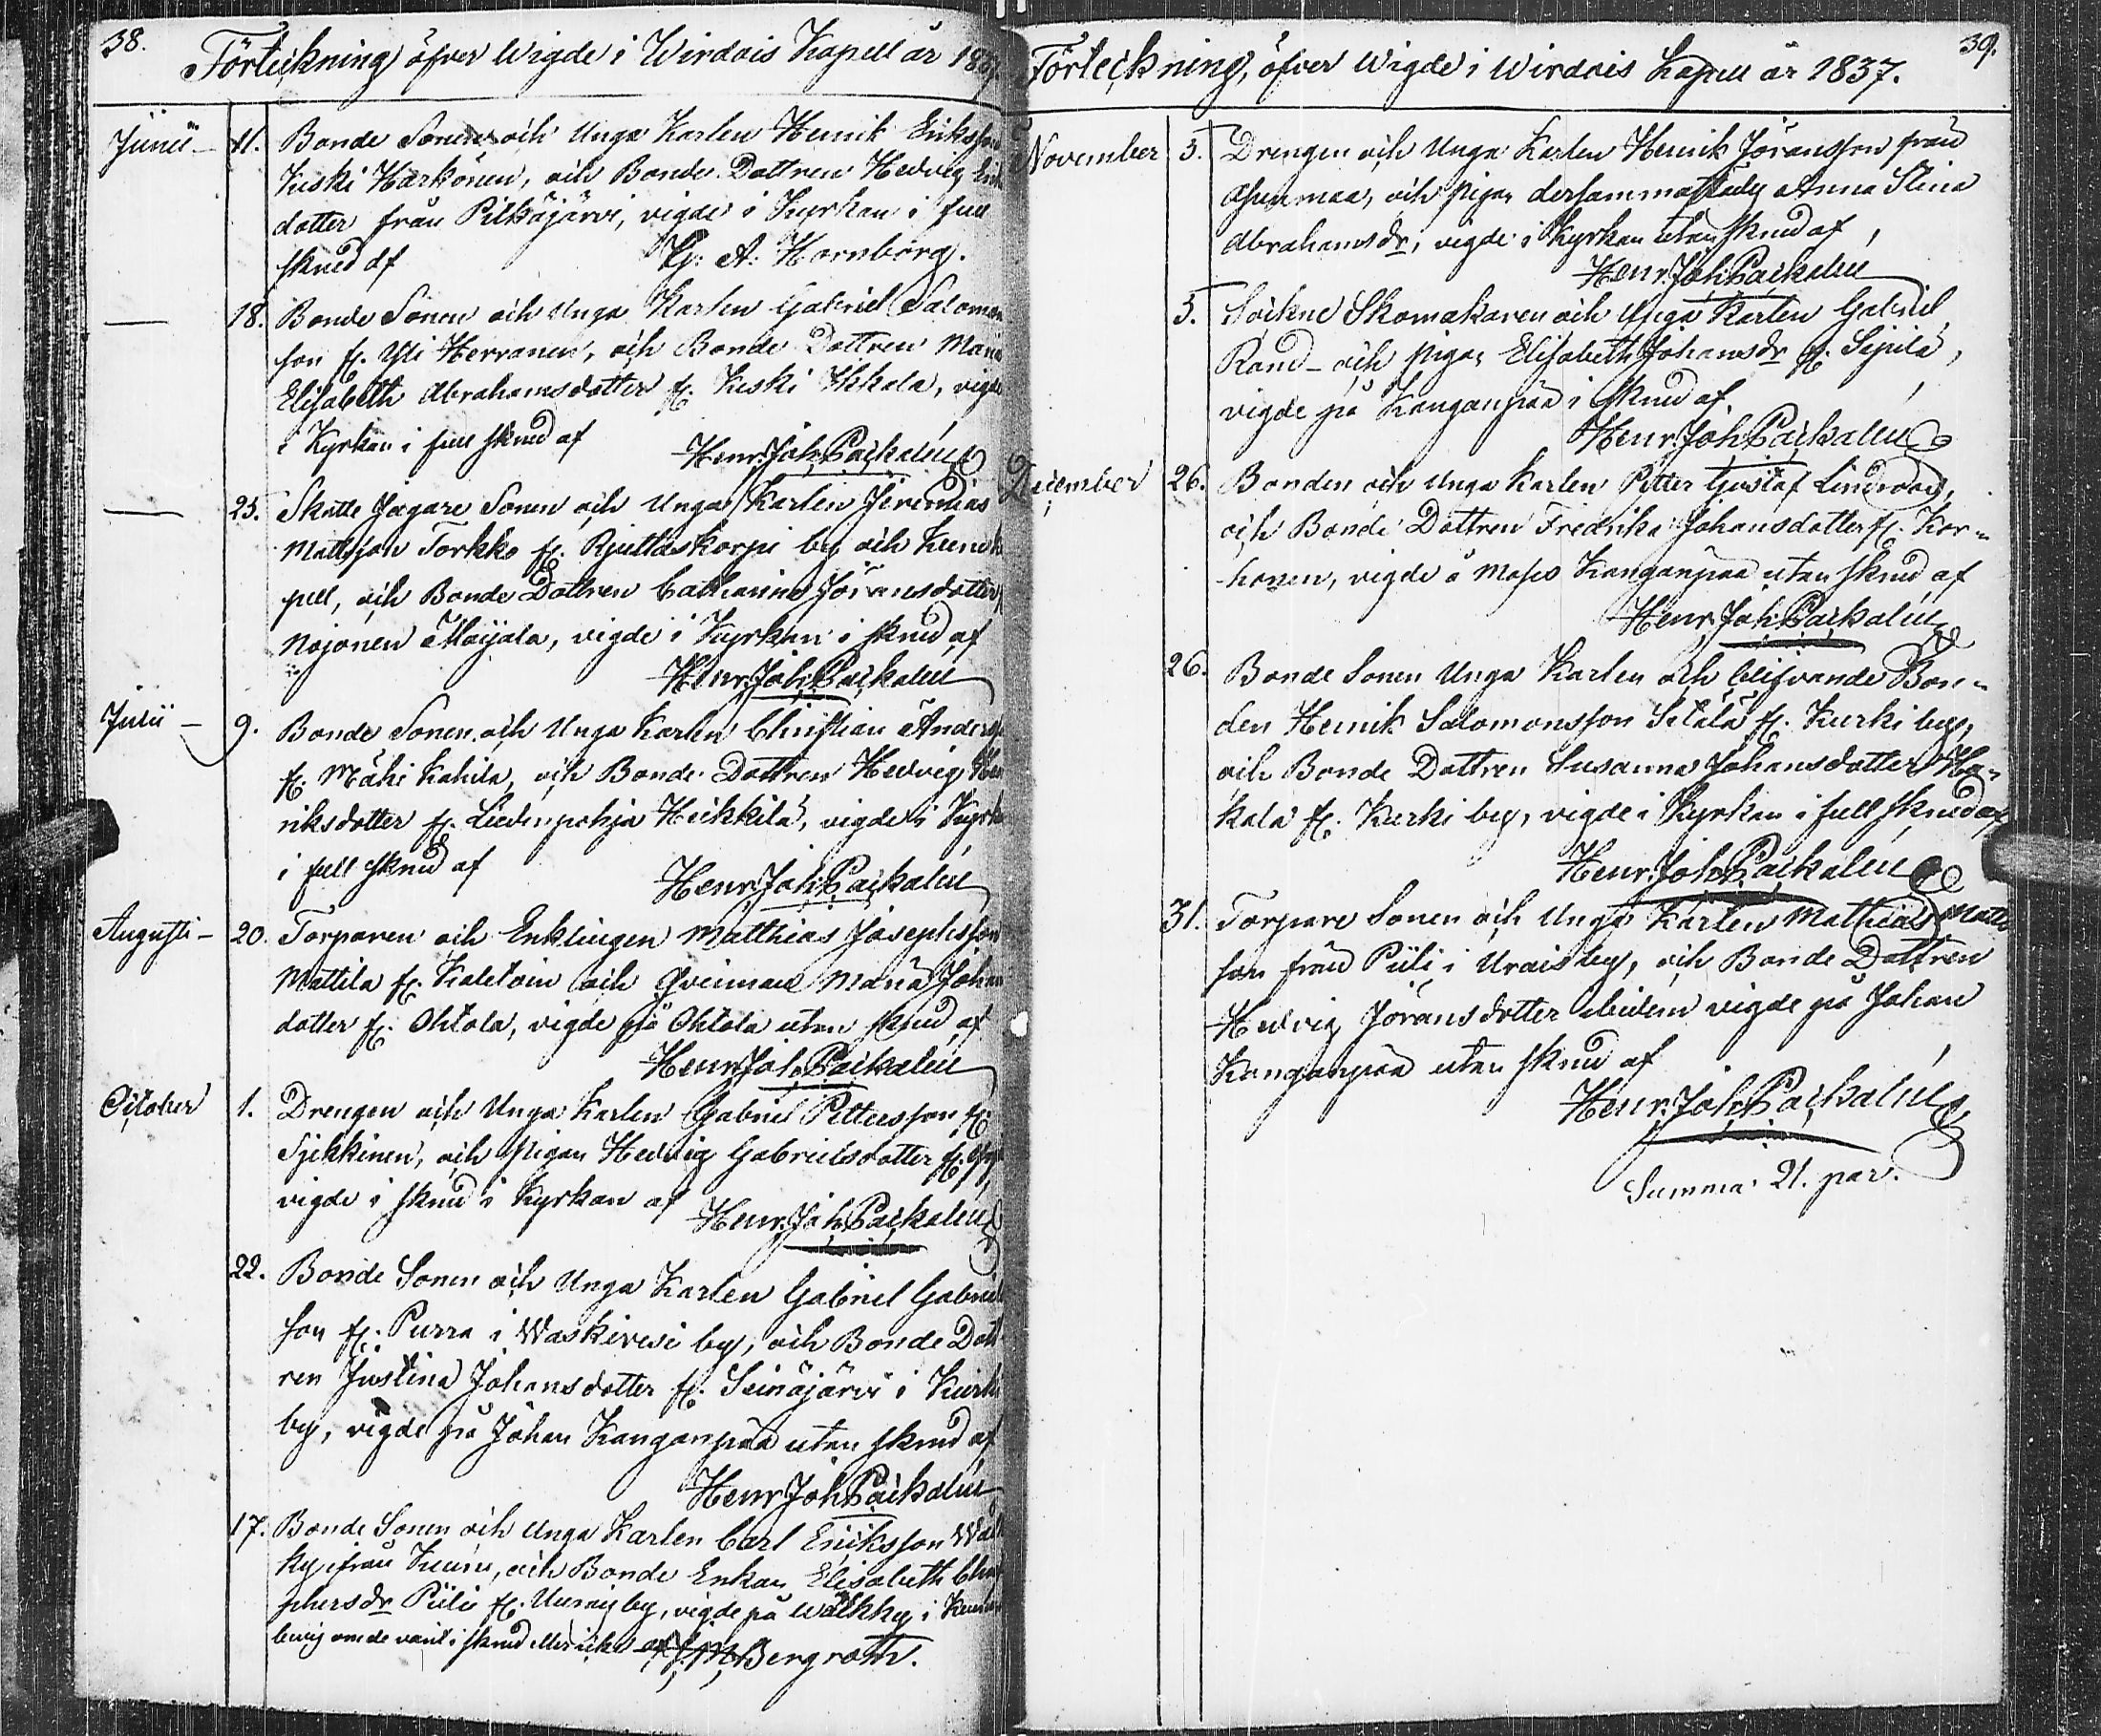 38.
Förteckning öfver Wigde i Wirdois Kapell år 1837.
Junii 11. Bonde Sonen och Unga Karlen Henrik Eriksson
Keski Härkönen, och Bonde Dottren Hedvig
dotter från Pitkäjärvi, vigde i Kyrkan i full
skrud af G: A: Hornborg.
— 18. Bonde Sonen och Unga Karlen Gabriel Salomon
son fr. Yli Herranen, och Bonde Dottren Maria
Elisabeth Abrahamsdotter fr. Keski Ikkala, vigde
i Kyrkan i full skrud af
Henr. Joh. Packalén
— 25. Skatte Jägare Sonen och Unga Karlen Jeremias
Mattsson Torkko fr. by och
pell, och Bonde Dottren Catharina Jöransdotter
Nojonen, vigde i Kyrkan i skrud af
Henr. Joh. Packalén
Julii — 9. Bonde Sonen och Unga Karlen Christian Anders
fr. Mäki Kahila, och Bonde Dottren Hedvig Hen
riksdotter fr. Liedenpohja Heikkilä, vigde i Kyrk
i full skrud af
Henr. Joh. Packalén
Augusti — 20. Torparen och Enklingen Matthias Josephsson
Mattila fr. Kaletoin och Qvinnan Maria Johans
dotter fr. Ohtola, vigde på Ohtola utan skrud af
Henr. Joh. Packalén
October 1. Drengen och Unga Karlen Gabriel Pettersson fr.
och Pigan Hedvig Gabrielsdotter fr.
vigde i skrud i Kyrkan af
Henr. Joh. Packalén
22. Bonde Sonen och Unga Karlen Gabriel Gabriels
son fr. Purra i Waskivesi by, och Bonde Dott
ren Justina Johansdotter fr. Seinäjärvi i Kurki
by, vigde på Johan Kanganpää utan skrud af
Henr. Joh. Packalén
17. Bonde Sonen och Unga Karlen Carl Eriksson Wäl
ky ifrån och Bonde Enkan Elisabeth Chris
phersdr Piili fr. by, vigde på Wälkky i
om de varit i skrud eller icke af J. M. Bergroth.
39.
Förteckning, öfver Wigde i Wirdois Kapell år 1837.
November 5. Drengen och Unga Karlen Henrik Jöransson från
och Pigan dersammastädes Anna Stina
Abrahamsdr, vigde i Kyrkan utan skrud af
Henr. Joh. Packalén
5. Sockne Skomakaren och Unga Karlen Gabriel
Rand och Pigan Elisabeth Johansdr fr. Sipilä,
vigde på Kanganpää i skrud af
Henr. Joh. Packalén
December 26. Bonden och Unga Karlen Petter Gustaf Lindroos,
och Bonde Dottren Fredrika Johansdotter fr. Kor-
honen, vigde å Moses Kanganpää utan skrud af
Henr. Joh. Packalén
26. Bonde Sonen Unga Karlen och blifvande Bon-
den Henrik Salomonsson Setälä fr. Kurki by,
och Bonde Dottren Susanna Johansdotter
kala fr. Kurki by, vigde i Kyrkan i full skrud af
Henr. Joh. Packalén
31. Torpare Sonen och Unga Karlen Mathias Matts
son från Piili i Urais by, och Bonde Dottren
Hedvig Jöransdotter vigde på Johan
Kanganpää utan skrud af
Henr. Joh. Packalén
Summa 21. par.